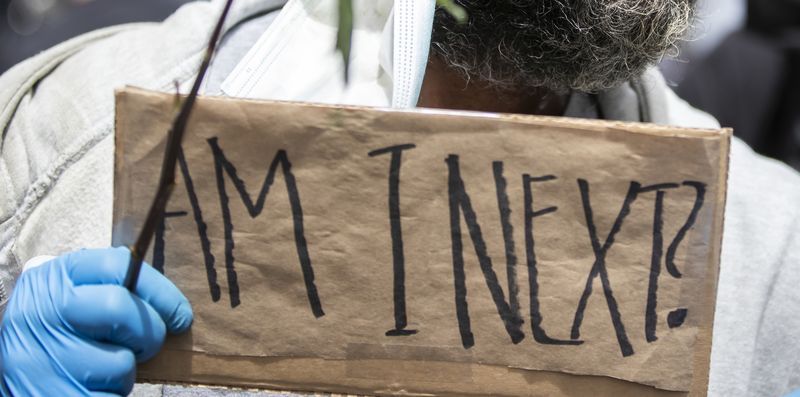 AM I NEXT?